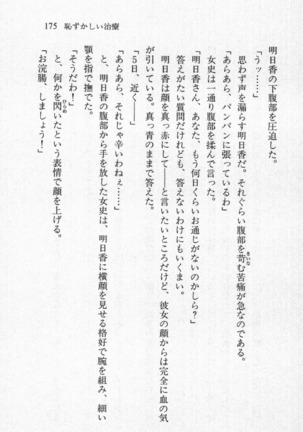 175 恥ずかしい治療
明日香の下腹部を圧迫した。
「うッ……」
思わず声を漏らす明日香だ。それぐらい腹部を苛む苦痛が急なのである。
「あらあら、パンパンに張っているわ」
女史は一通り腹部を揉んで言った。
「明日香さん、あなた、もう何日くらいお通じがないのかしら？」
答えがたい質問だけれども、答えないわけにもいくまい。
明日香は顔を真っ赤にして――と言いたいところだけど、彼女の顔からは完全に血の気
が引いている。真っ青のままで答えた。
「5日、近く――」
「あらあら、それじゃ辛いわねぇ……」
と、明日香の腹部から手を放した女史は、明日香に横顔を見せる格好で腕を組み、細い
顎を指で撫でた。
「そうだわ！」
と、何かを閃いたという表情で顔を上げる。
「お浣腸、しましょう！」